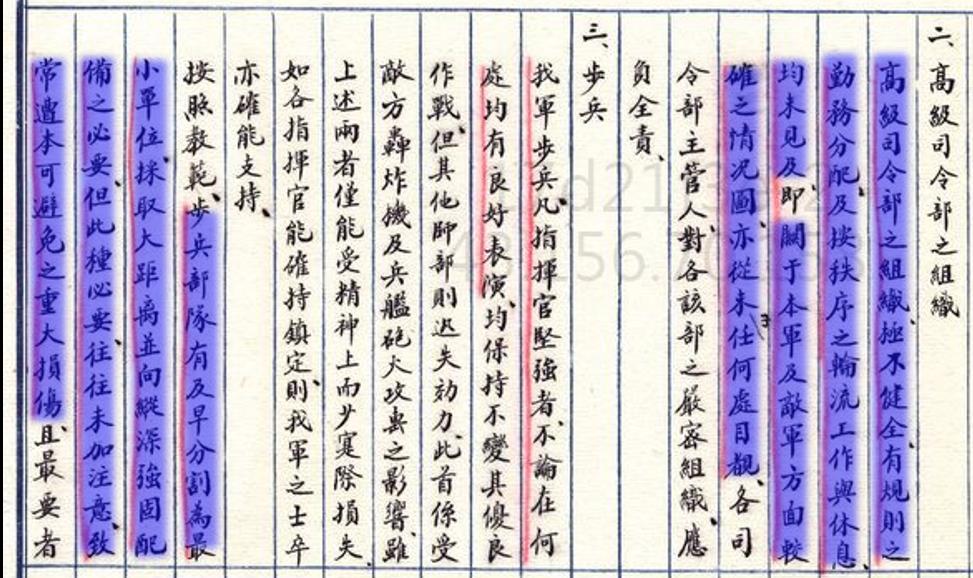 二、高級司令部之組織
高級司令部之組織、極不健全、有規則之
勤務分配、及按秩序之輪流工作與休息、
均未見及、即關于本軍及敵軍方面較
確之情況圖、亦從未任何處目覩、各司
令部主管人、對各該部之嚴密組織、應
負全責、
三、步兵
我軍步兵、凡指揮官堅強者、不論在何
處均有良好表演、均保持不變其優良
作戰、但其他師部則迅失効力、此首係受
敵方轟炸機及兵艦砲火攻擊之影響、雖
上述兩者僅能受精神上而少寔際損失、
如各指揮官能確持鎮定、則我軍之士卒
亦確能支持、
按照教範、步兵部隊有及早分割為最
小單位、採取大距離並向縱深強固配
備之必要、但此種必要、往往未加注意、致
常遭本可避免之重大損傷、且最要者